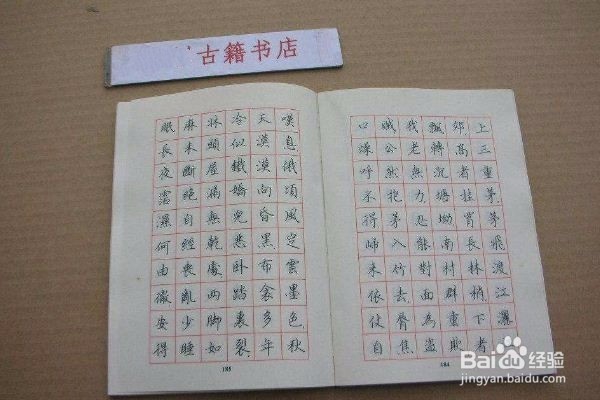 古籍书店
上三重茅茅飛渡江灑
郊高者挂罥長林梢下者
飄轉沉塘坳南村群童欺
我老無力忍能對面為盜
賊公然抱茅入竹去脣焦
口燥呼不得歸來倚仗自
184
嘆息俄頃風定雲墨色秋
天漠漠向昏黑布衾多年
冷似鐵嬌兒惡臥踏裏裂
牀頭屋漏無乾處雨腳如
麻未斷絕自經喪亂少睡
眠長夜霑濕何由徹安得
185
Baidu经验
jingyan.baidu.com